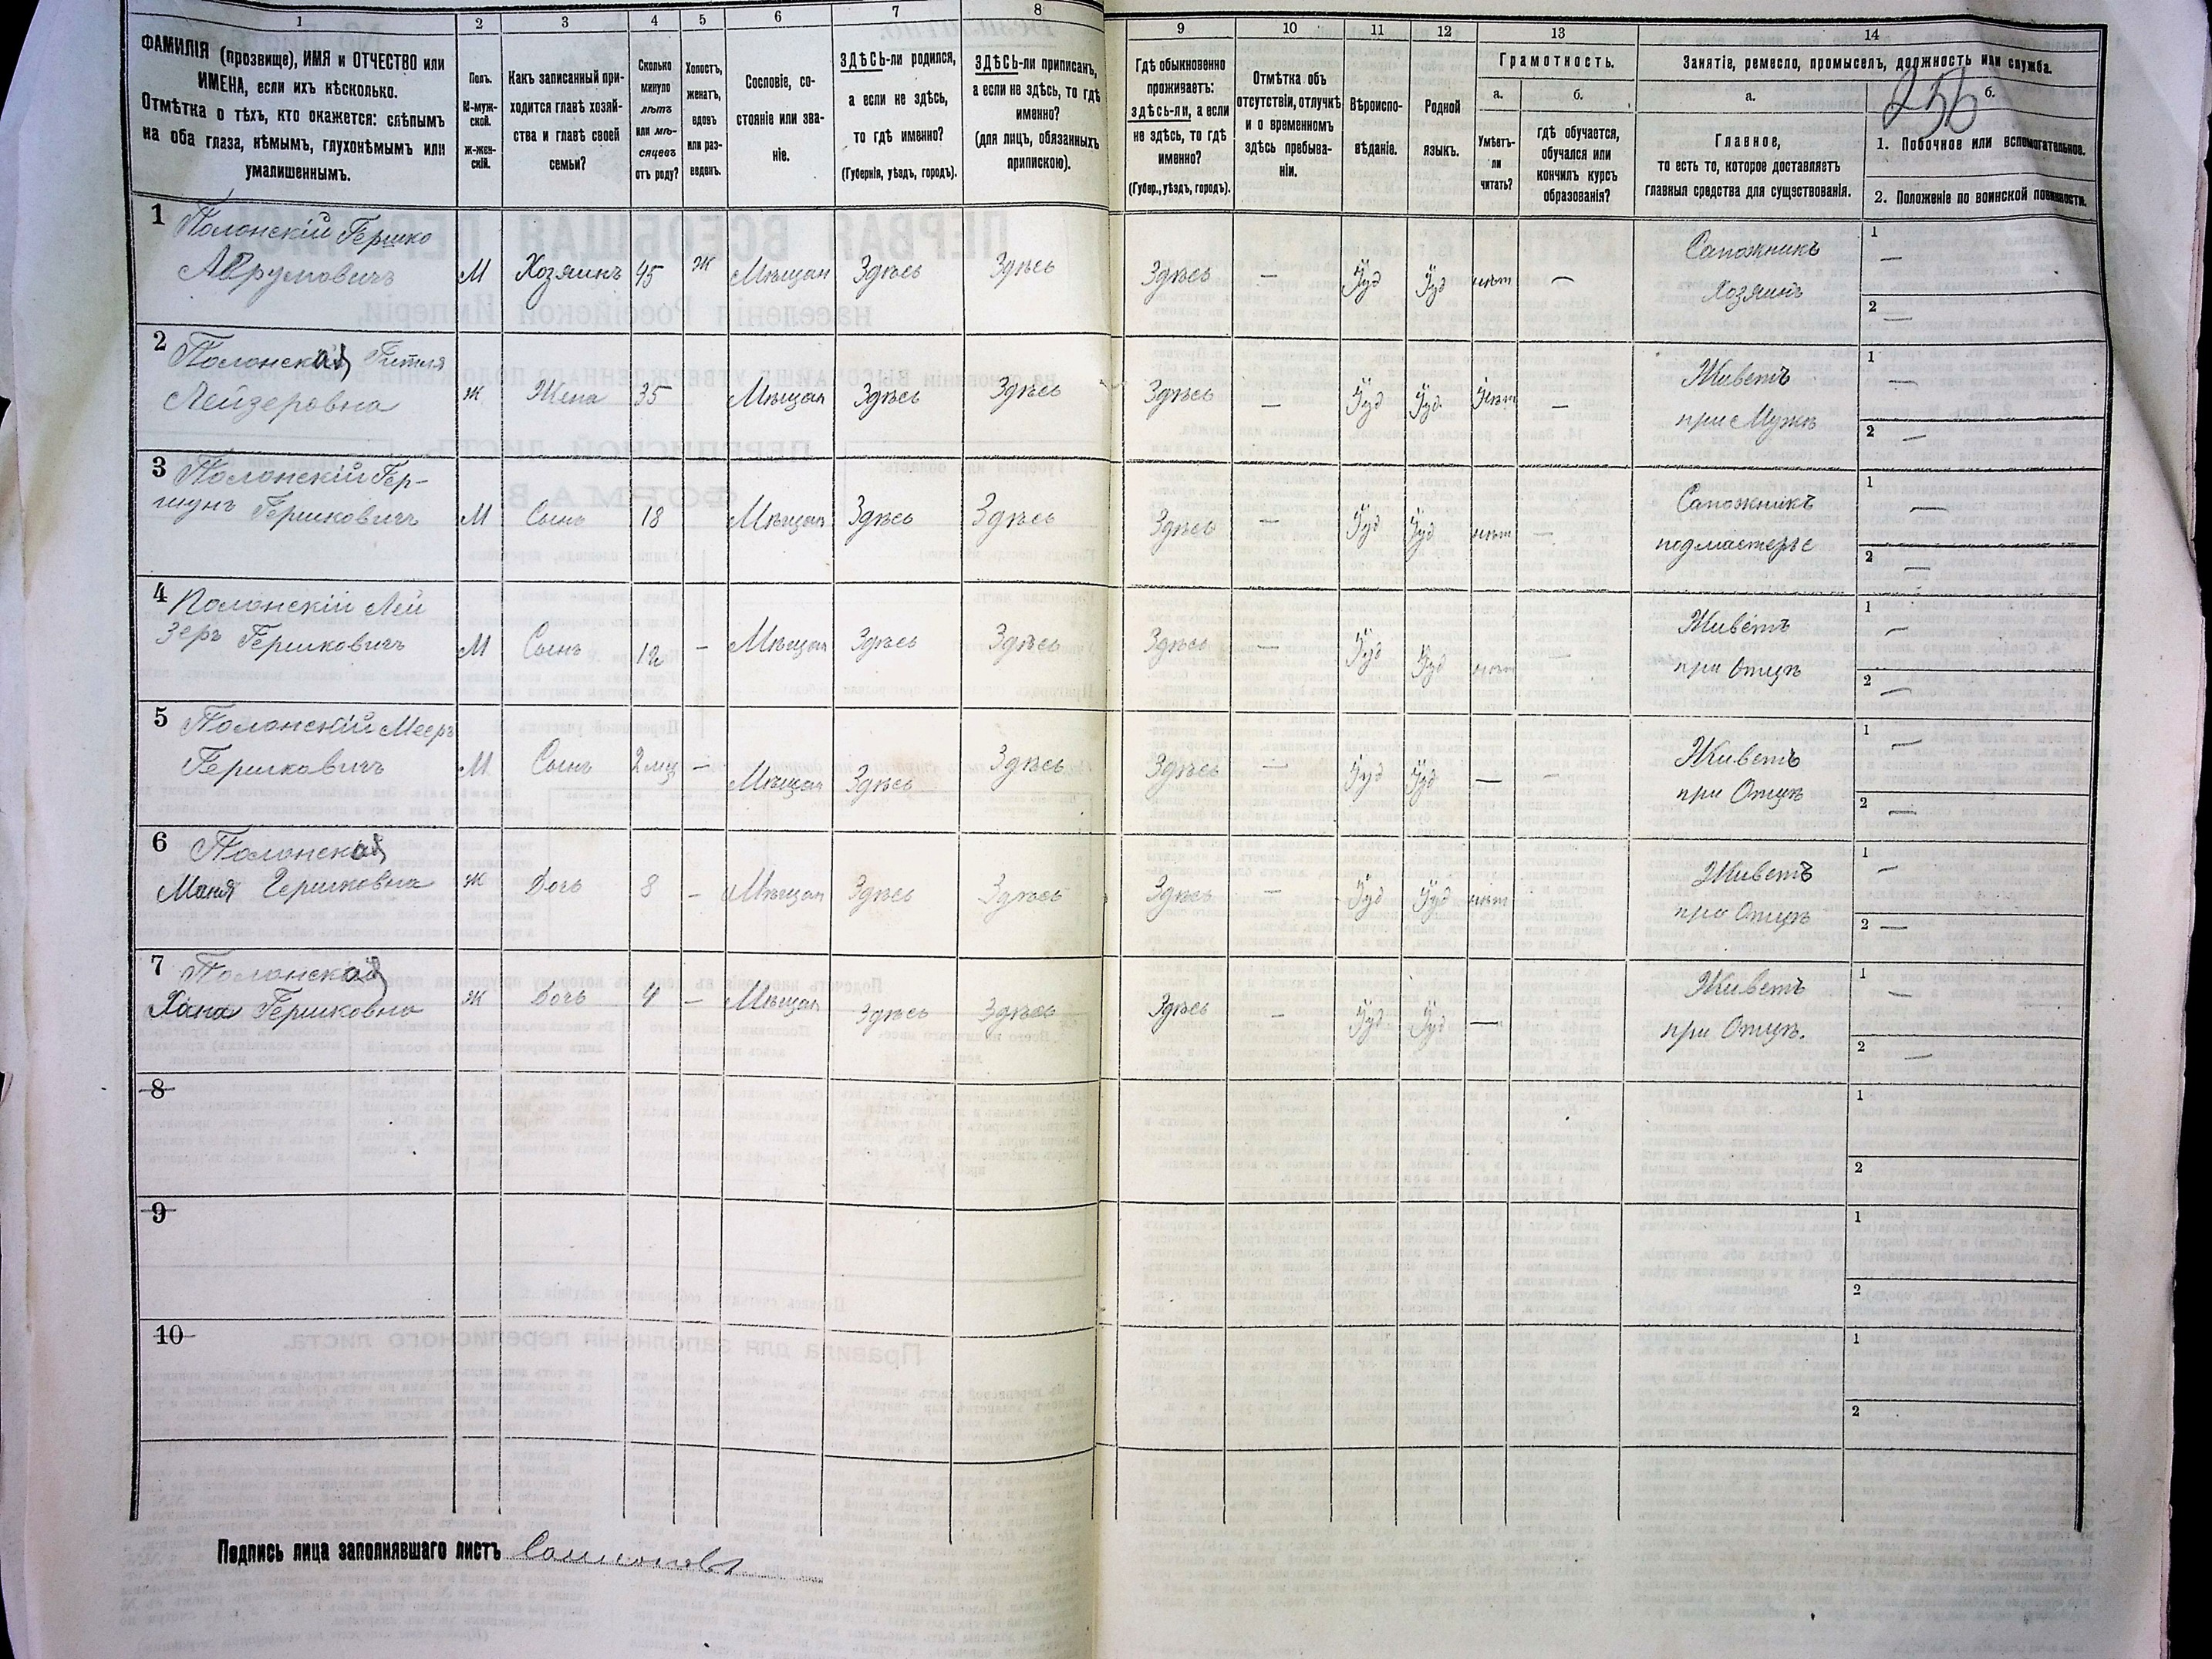 1 2 3 4 5 6 7 8 9 10 11 12 13 14
ФАМИЛІЯ (прозвище), ИМЯ и ОТЧЕСТВО или
ИМЕНА, если ихъ нѣсколько.
Отмѣтка о тѣхъ, кто окажется: слѣпымъ
на оба глаза, нѣмымъ, глухонѣмымъ или
умалишеннымъ.
Полъ.
М-муж-
ской.
Ж-жен-
скій.
Какъ записанный при-
ходится главѣ хозяй-
ства и главѣ своей
семьи?
Сколько
минуло
лѣтъ
или мѣ-
сяцевъ
отъ роду?
Холостъ,
женатъ,
вдовъ
или раз-
веденъ.
Сословіе, со-
стояніе или зва-
ніе.
ЗДѢСЬ-ли родился,
а если не здѣсь,
то гдѣ именно?
(Губернія, уѣздъ, городъ).
ЗДѢСЬ-ли приписанъ,
а если не здѣсь, то гдѣ
именно?
(для лицъ, обязанныхъ
припискою).
Гдѣ обыкновенно
проживаетъ:
здѣсь-ли, а если
не здѣсь, то гдѣ
именно?
(Губер., уѣздъ, городъ).
Отмѣтка объ
отсутствіи, отлучкѣ
и о временномъ
здѣсь пребыва-
ніи.
Вѣроиспо-
вѣданіе.
Родной
языкъ.
Грамотность.
а.
Умѣетъ-
ли
читать?
б.
гдѣ обучается,
обучался или
кончилъ курсъ
образованія?
Занятіе, ремесло, промыселъ, должность или служба.
а.
Главное,
то есть то, которое доставляетъ
главныя средства для существованія.
б.
256
1. Побочное или вспомогательное.
2. Положеніе по воинской повинности.
1 Полонскій Гершко
Аврумовичъ М Хозяинъ 45 Ж Мѣщан Здѣсь Здѣсь Здѣсь — Іуд Іуд нѣт — Сапожникъ
Хозяинъ
1 —
2 —
2 Полонская Гитля
Лейзеровна Ж Жена 35 Мѣщан Здѣсь Здѣсь Здѣсь — Іуд Іуд нѣт — Живетъ
при Мужѣ
1 —
2 —
3 Полонскій Гер-
шунъ Гершковичъ М Сынъ 18 Мѣщан Здѣсь Здѣсь Здѣсь — Іуд Іуд нѣт — Сапожникъ
подмастерье
1 —
2 —
4 Полонскій Лей
зеръ Гершковичъ М Сынъ 12 — Мѣщан Здѣсь Здѣсь Здѣсь — Іуд Іуд нѣт — Живетъ
при Отцѣ
1 —
2 —
5 Полонскій Мееръ
Гершковичъ М Сынъ 2 мц — Мѣщан Здѣсь Здѣсь Здѣсь — Іуд Іуд — — Живетъ
при Отцѣ
1 —
2 —
6 Полонская
Маня Гершковна Ж Дочь 8 — Мѣщан Здѣсь Здѣсь Здѣсь — Іуд Іуд нѣт Живетъ
при Отцѣ
1 —
2 —
7 Полонская
Хана Гершковна Ж Дочь 4 — Мѣщан Здѣсь Здѣсь Здѣсь — Іуд Іуд — Живетъ
при Отцѣ.
1 —
2 —
8
1
2
9
1
2
10
1
2
Подпись лица заполнявшаго листъ